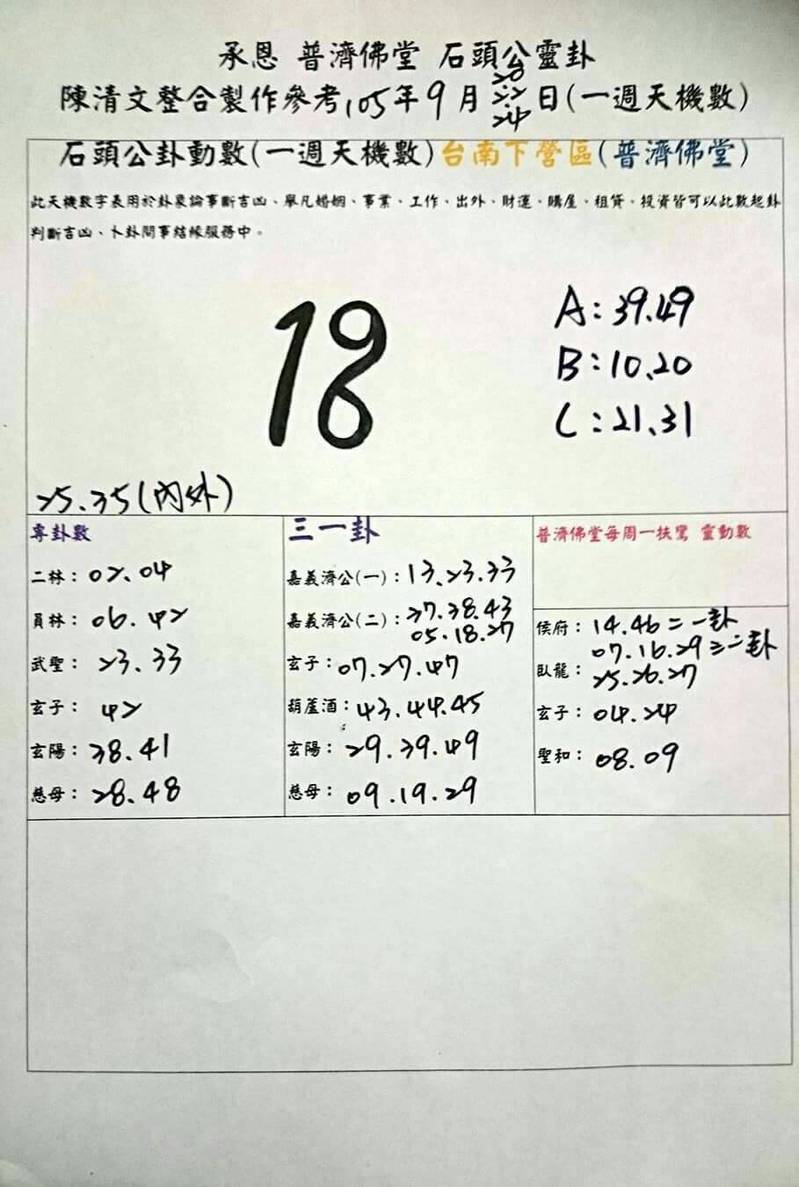 承恩 普濟佛堂 石頭公靈卦
陳清文整合製作參考105年9月20 22 24日(一週天機數)
石頭公卦動數(一週天機數)台南下營區(普濟佛堂)
此天機數字表用於卦象論事斷吉凶、舉凡婚姻、事業、工作、出外、財運、購屋、租賃、投資皆可以此數起卦
判斷吉凶、卜卦問事結緣服務中。
18
A:39.49
B:10.20
C:21.31
25.35(內外)
專卦數
二林:02.04
員林:06.42
武聖:23.33
玄子:42
玄陽:38.41
慈母:28.48
三一卦
嘉義濟公(一):13.23.33
嘉義濟公(二):37.38.43
05.18.27
玄子:07.27.47
葫蘆酒:43.44.45
玄陽:29.39.49
慈母:09.19.29
普濟佛堂每周一扶鸞 靈動數
侯府:14.46二一卦
07.16.29三二卦
臥龍:25.26.27
玄子:04.24
聖和:08.09